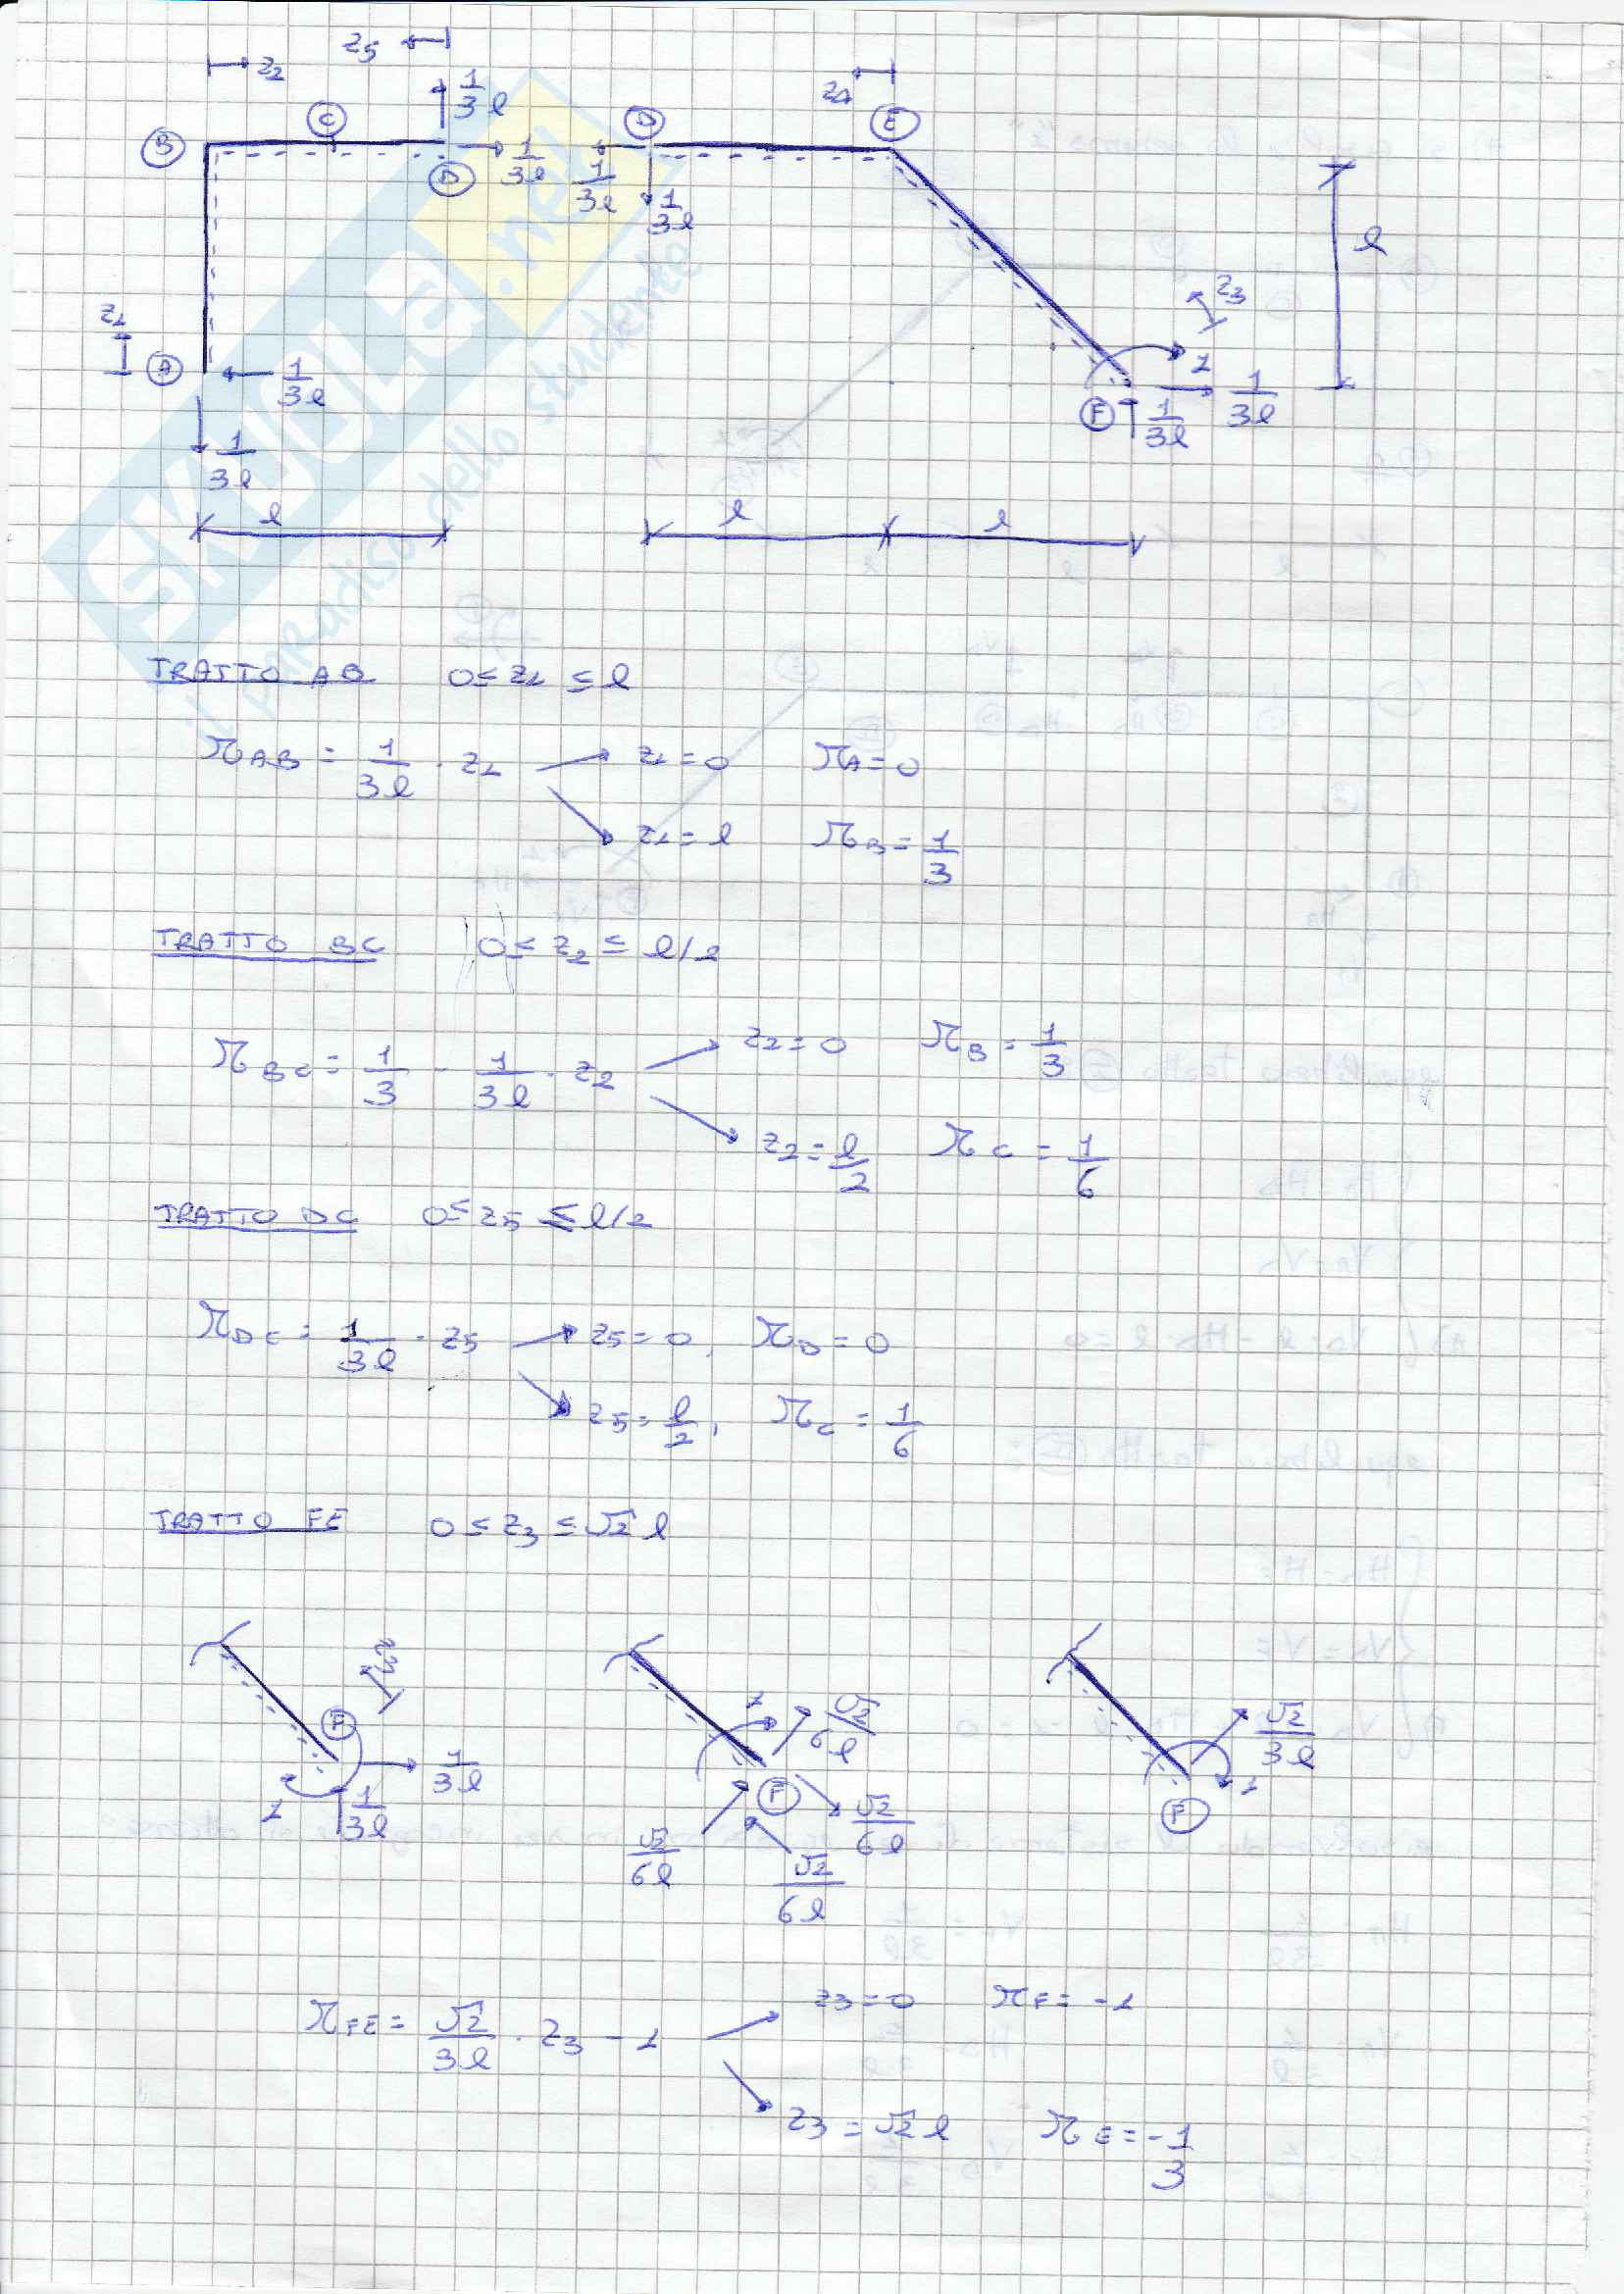 z5
z2
1/3l
z4
B
C
D
D
E
1/3l
1/3l
1/3l
l
z3
z1
A
1/3l
1
1/3l
F
1/3l
1/3l
l
l
l
SKUOLA.net
il paradiso dello studente
TRATTO AB 0 ≤ z1 ≤ l
MAB = 1/3l · z1 z1 = 0 MA = 0
z1 = l MB = 1/3
TRATTO BC 0 ≤ z2 ≤ l/2
MBC = 1/3 - 1/3l · z2 z2 = 0 MB = 1/3
z2 = l/2 MC = 1/6
TRATTO DC 0 ≤ z5 ≤ l/2
MDC = 1/3l · z5 z5 = 0, MD = 0
z5 = l/2, MC = 1/6
TRATTO FE 0 ≤ z3 ≤ √2 l
z3
F
1/3l
1
1/3l
1
√2/6l
F
√2/6l
√2/6l
√2/6l
√2/3l
1
F
MFE = √2/3l · z3 - 1 z3 = 0 MF = -1
z3 = √2 l ME = -1/3